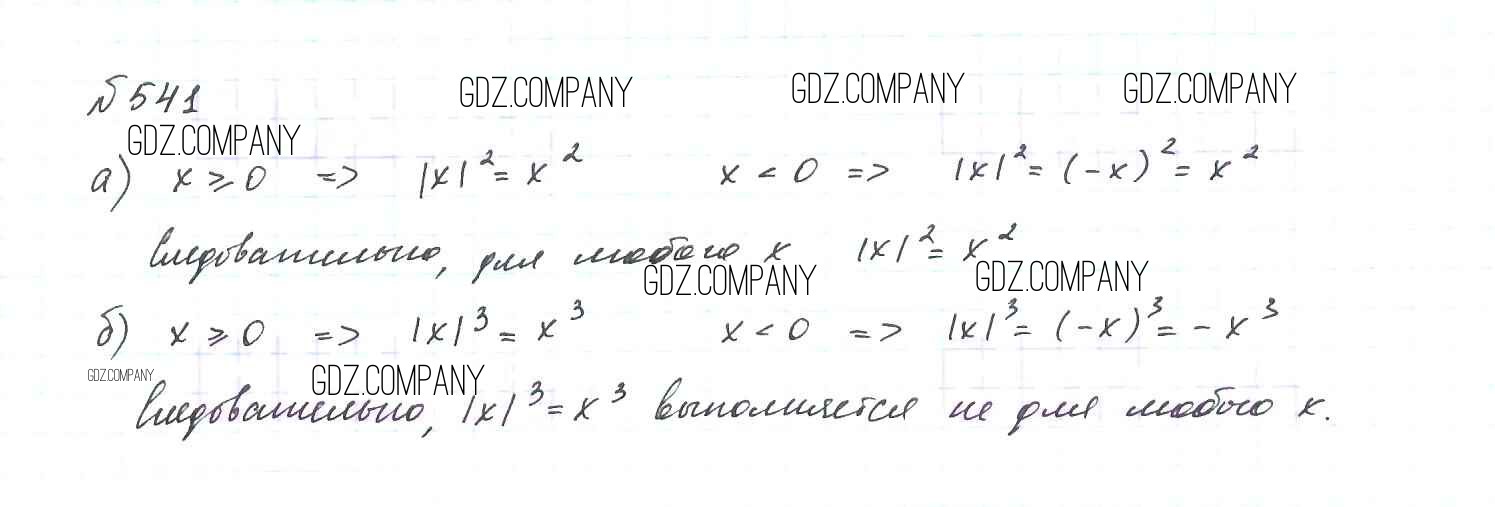 №541
GDZ.COMPANY GDZ.COMPANY GDZ.COMPANY
GDZ.COMPANY
а) x ≥ 0 => |x|² = x² x < 0 => |x|² = (-x)² = x²
Следовательно, для любого x |x|² = x²
GDZ.COMPANY GDZ.COMPANY
б) x ≥ 0 => |x|³ = x³ x < 0 => |x|³ = (-x)³ = -x³
GDZ.COMPANY GDZ.COMPANY
Следовательно, |x|³ = x³ выполняется не для любого x.